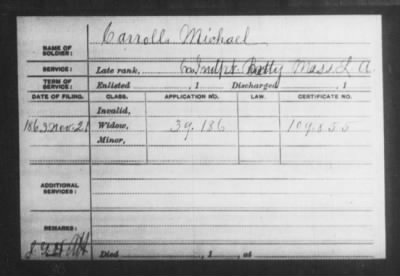 NAME OF SOLDIER: Carrolls Michael
SERVICE: Late rank, Batty Mass L. A.
TERM OF SERVICE: Enlisted , 1 Discharged , 1
DATE OF FILING. CLASS. APPLICATION NO. LAW. CERTIFICATE NO.
Invalid,
1863 Nov. 21 Widow, 39.186 109.855
Minor,
ADDITIONAL SERVICES:
REMARKS:
Died , 1 , at